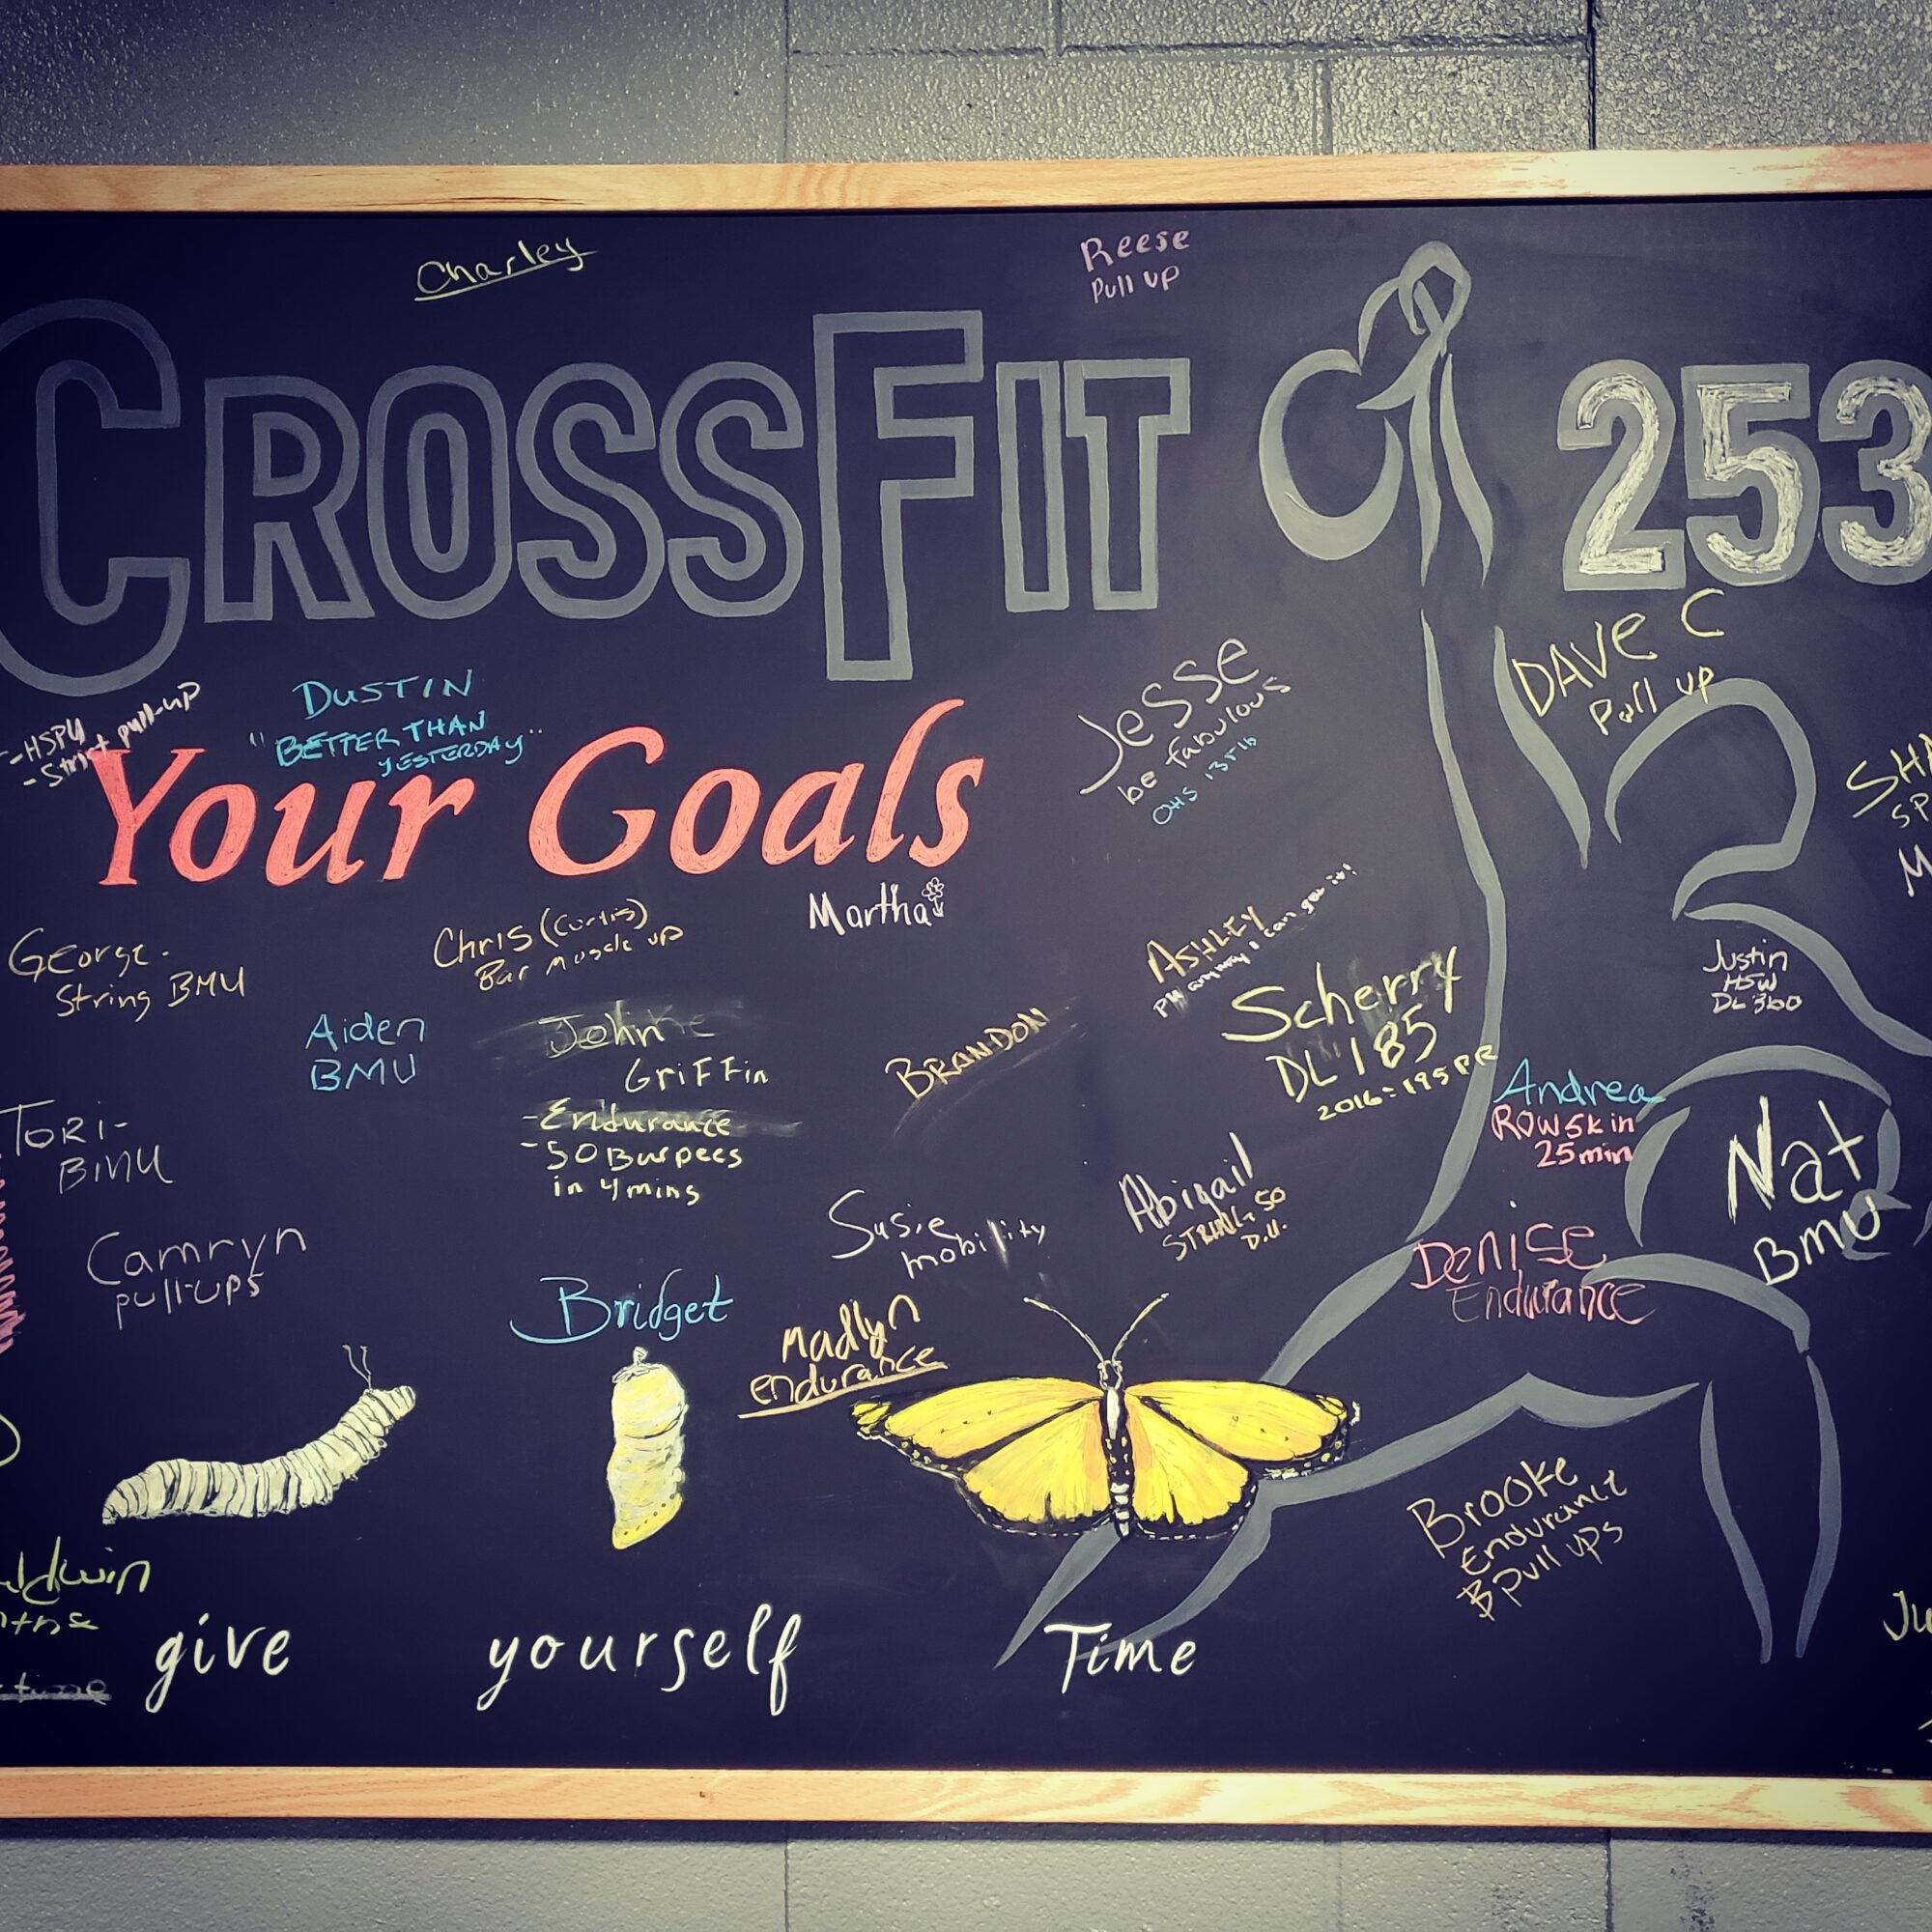 Charley
Reese
Pull up
CROSSFIT 253
-HSPU
- Strict pull-up
DUSTIN
"BETTER THAN
YESTERDAY"
Your Goals
Jesse
be fabulous
OHS 135lb
DAVE C
Pull up
Martha
George.
String BMU
Chris (Curtis)
Bar Muscle up
ASHLEY
PR anyway I can get it!
Scherry
DL 185
2016 = 195 PR
Justin
HSW
DL 360
Aiden
BMU
John
Griffin
-Endurance
-50 Burpees
in 4 mins
BRANDON
Andrea
ROW 5k in
25 min
TORI-
BMU
Nat
BMU
Camryn
pull-ups
Susie
mobility
Abigail
50
D.U.
Denise
Endurance
Bridget
Madlyn
endurance
Brooke
Endurance
Pull ups
give yourself Time